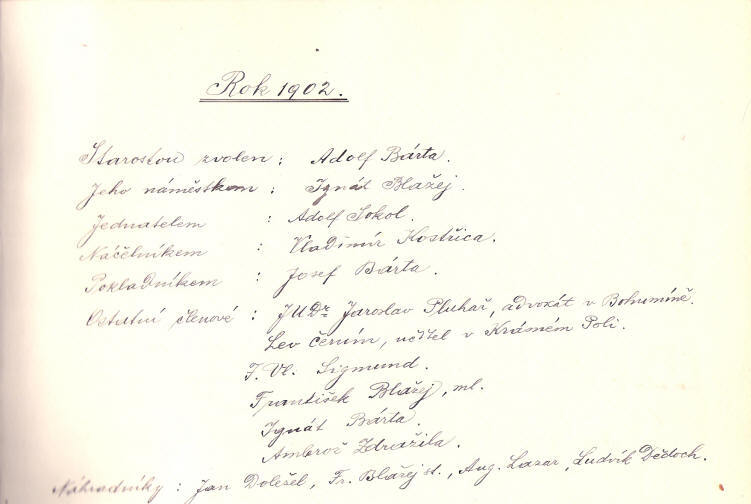 Rok 1902.
Starostou zvolen : Adolf Bárta.
Jeho náměstkem : Ignát Blažej.
Jednatelem : Adolf Sokol.
Náčelníkem : Vladimír Kostřica.
Pokladníkem : Josef Bárta.
Ostatní členové : JUDr Jaroslav Pluhař, advokát v Bohumíně.
Lev Černín, učitel v Krámém Poli.
F. Vl. Sigmund.
František Blažej, ml.
Ignát Bárta.
Ambrož Zdražila.
Náhradníky : Jan Doležel, Fr. Blažej st., Aug. Lazar, Ludvík Dědoch.